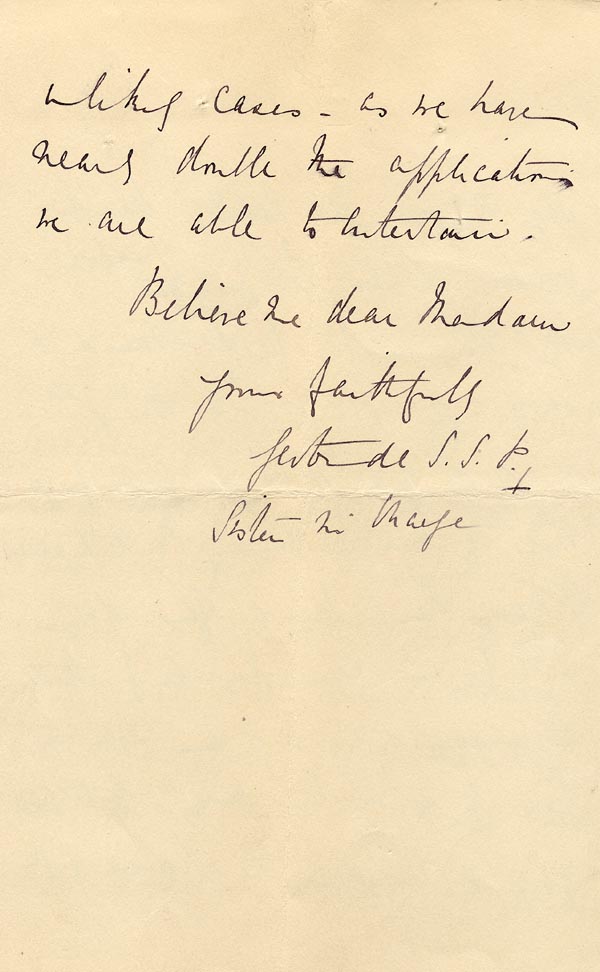 likely cases - as we have
nearly double the applications
we are able to entertain.
Believe me dear Madam
yours faithfully
Gertrude S. S. P.
Sister in Charge